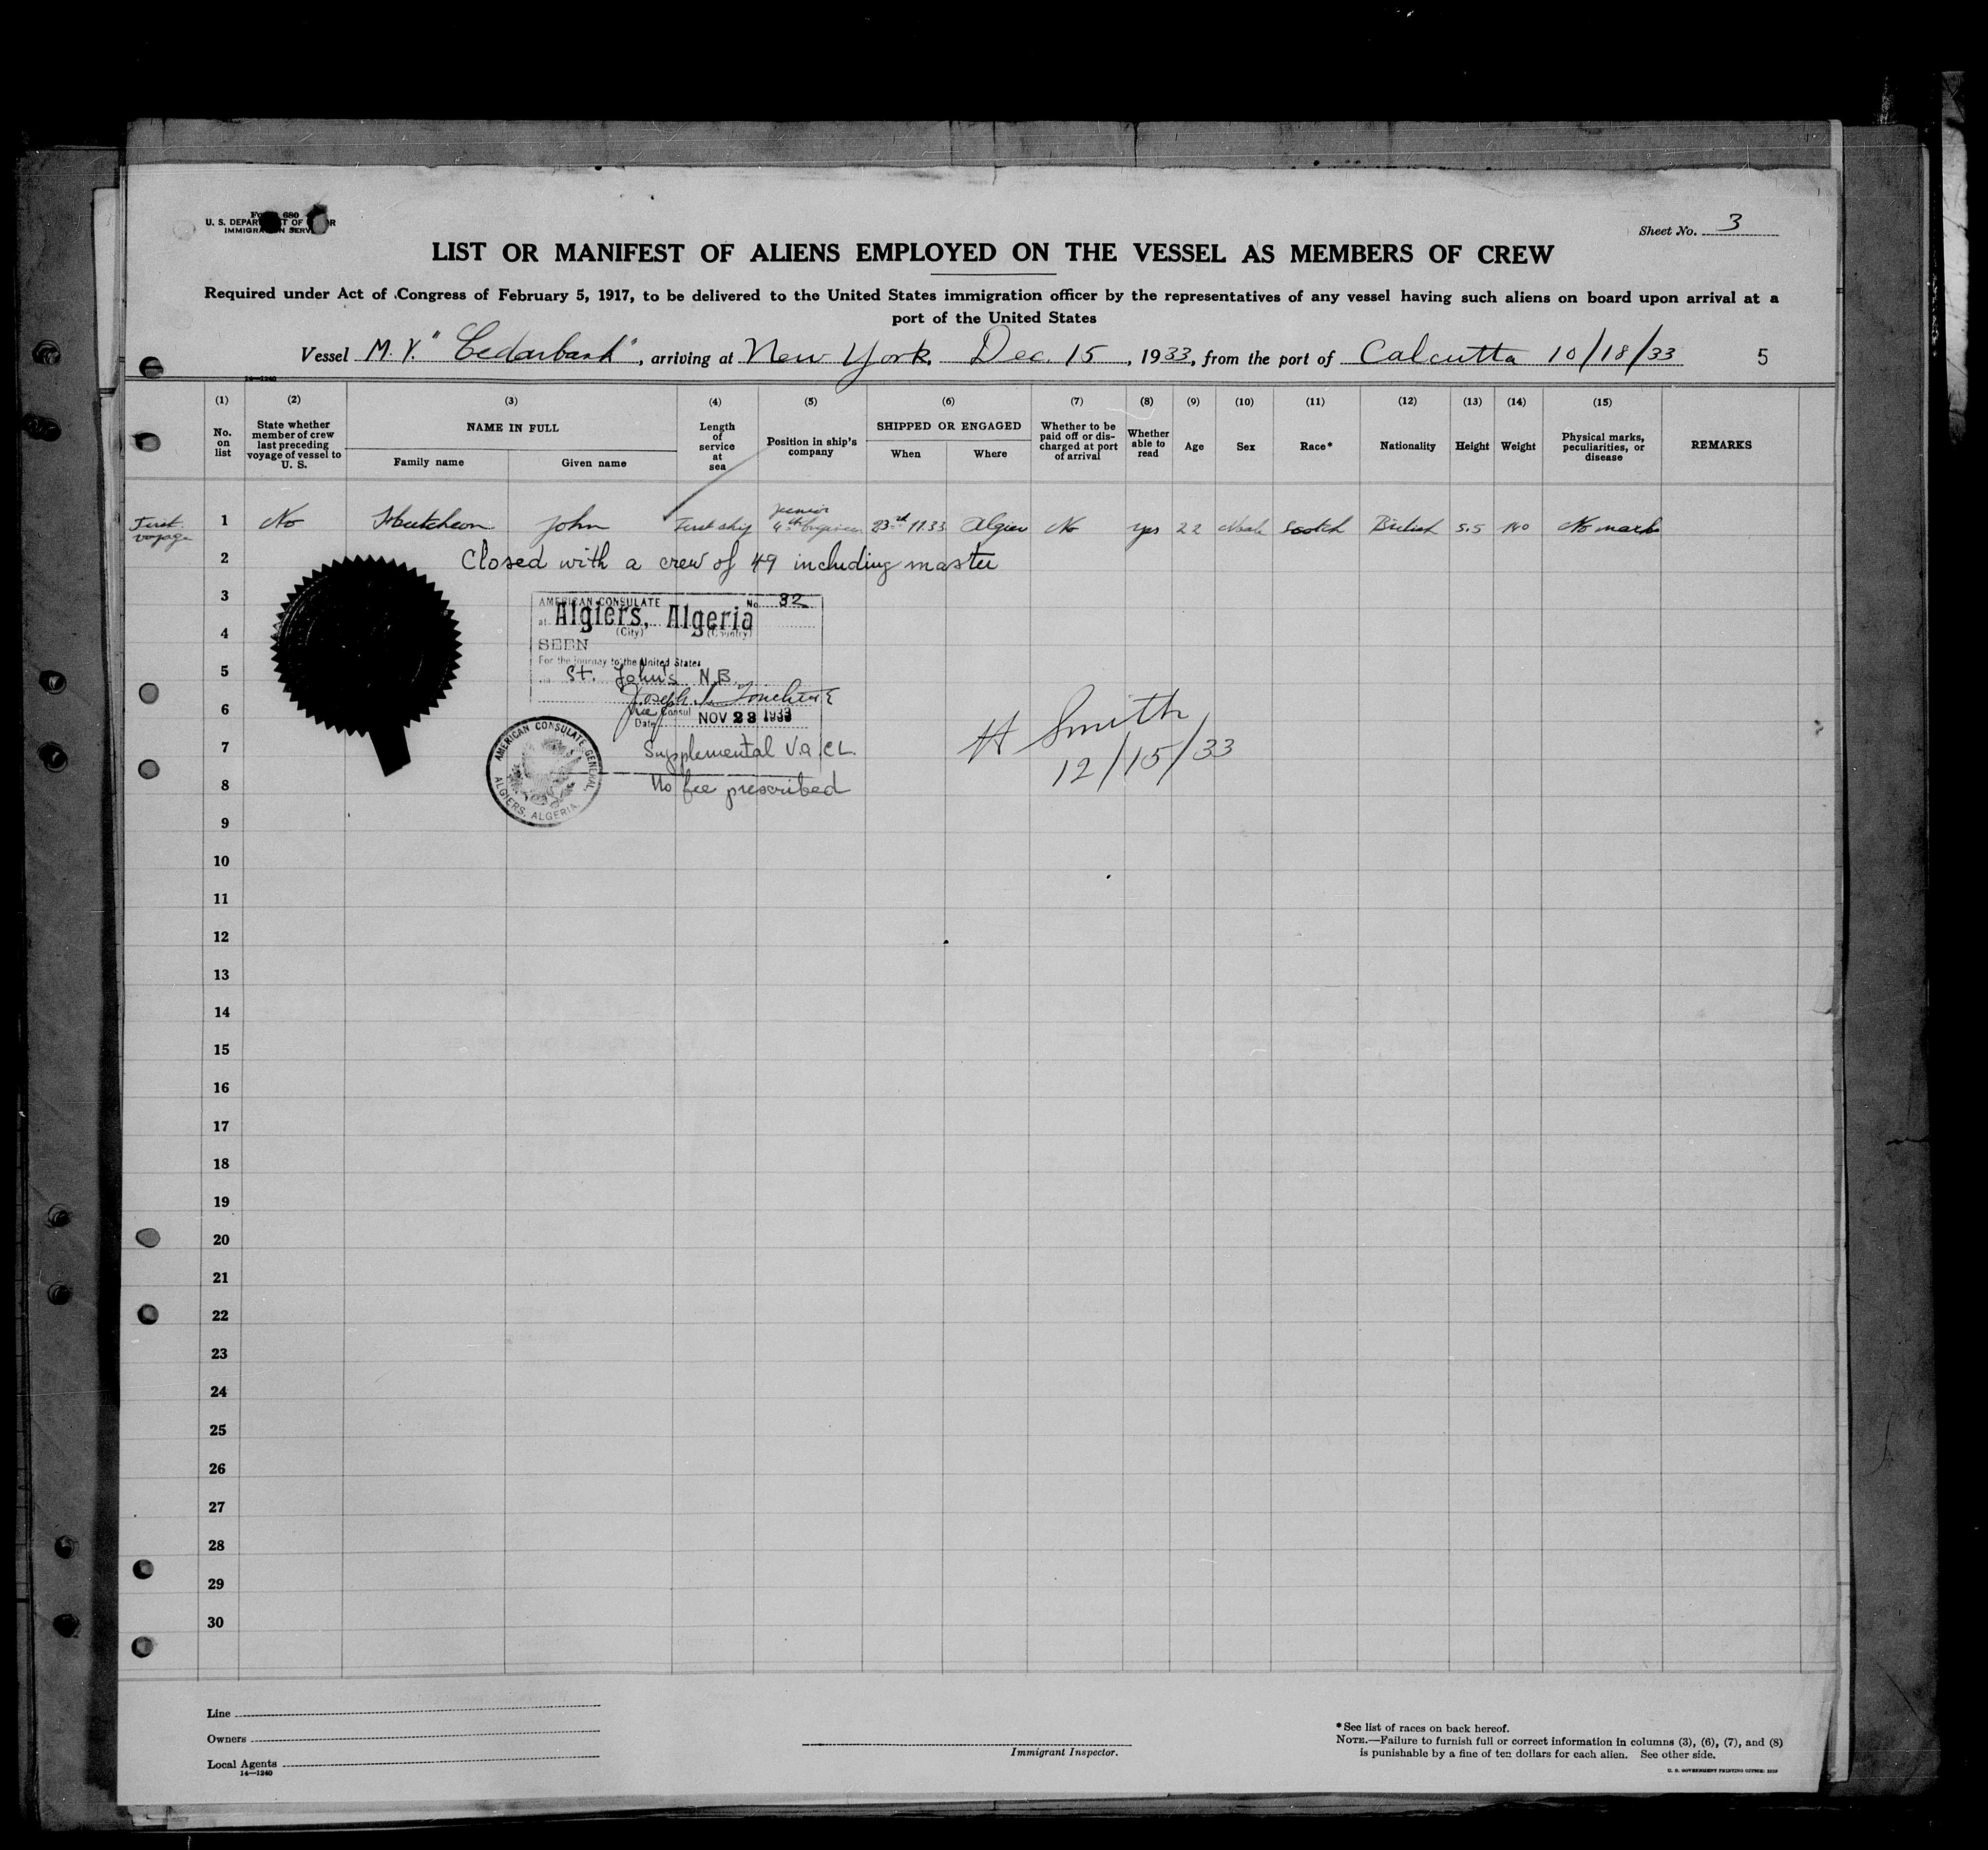 Form 680
U. S. DEPARTMENT OF LABOR
IMMIGRATION SERVICE
Sheet No. 3
LIST OR MANIFEST OF ALIENS EMPLOYED ON THE VESSEL AS MEMBERS OF CREW
Required under Act of Congress of February 5, 1917, to be delivered to the United States immigration officer by the representatives of any vessel having such aliens on board upon arrival at a
port of the United States
Vessel M.V. "Cedarbank", arriving at New York, Dec. 15, 1933, from the port of Calcutta 10/18/33 5
14—1240
(1) No. on list
(2) State whether member of crew last preceding voyage of vessel to U. S.
(3) NAME IN FULL
Family name Given name
(4) Length of service at sea
(5) Position in ship's company
(6) SHIPPED OR ENGAGED
When Where
(7) Whether to be paid off or dis-charged at port of arrival
(8) Whether able to read
(9) Age
(10) Sex
(11) Race*
(12) Nationality
(13) Height
(14) Weight
(15) Physical marks, peculiarities, or disease
REMARKS
First voyage 1 No Hutcheon John First ship Junior 4th Engineer 23rd 11.33 Algier No yes 22 Male Scotch British 5.5 140 No marks
2 Closed with a crew of 49 including master
3
AMERICAN CONSULATE No. 32
at Algiers, Algeria
(City) (Country)
4
SEEN
For the journey to the United States
5
St. John's N.B.
Joseph
6
Vice Consul
Date NOV 23 1933
H Smith
12/15/33
7
Supplemental
8
No fee prescribed
AMERICAN CONSULATE GENERAL, ALGIERS, ALGERIA.
9
10
11
12
13
14
15
16
17
18
19
20
21
22
23
24
25
26
27
28
29
30
Line
Owners
Local Agents
14—1240
Immigrant Inspector.
*See list of races on back hereof.
NOTE.—Failure to furnish full or correct information in columns (3), (6), (7), and (8)
is punishable by a fine of ten dollars for each alien. See other side.
U. S. GOVERNMENT PRINTING OFFICE: